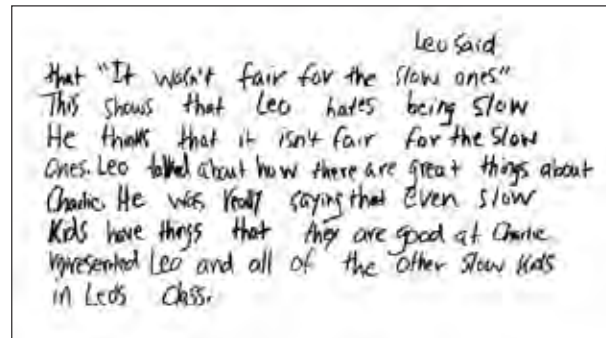 Leo said
that "It wasn't fair for the slow ones."
This shows that Leo hates being slow
He thinks that it isn't fair for the slow
ones. Leo talked about how there are great things about
Charlie. He was really saying that even slow
Kids have things that they are good at Charlie
represented Leo and all of the other slow kids
in Leo's class.